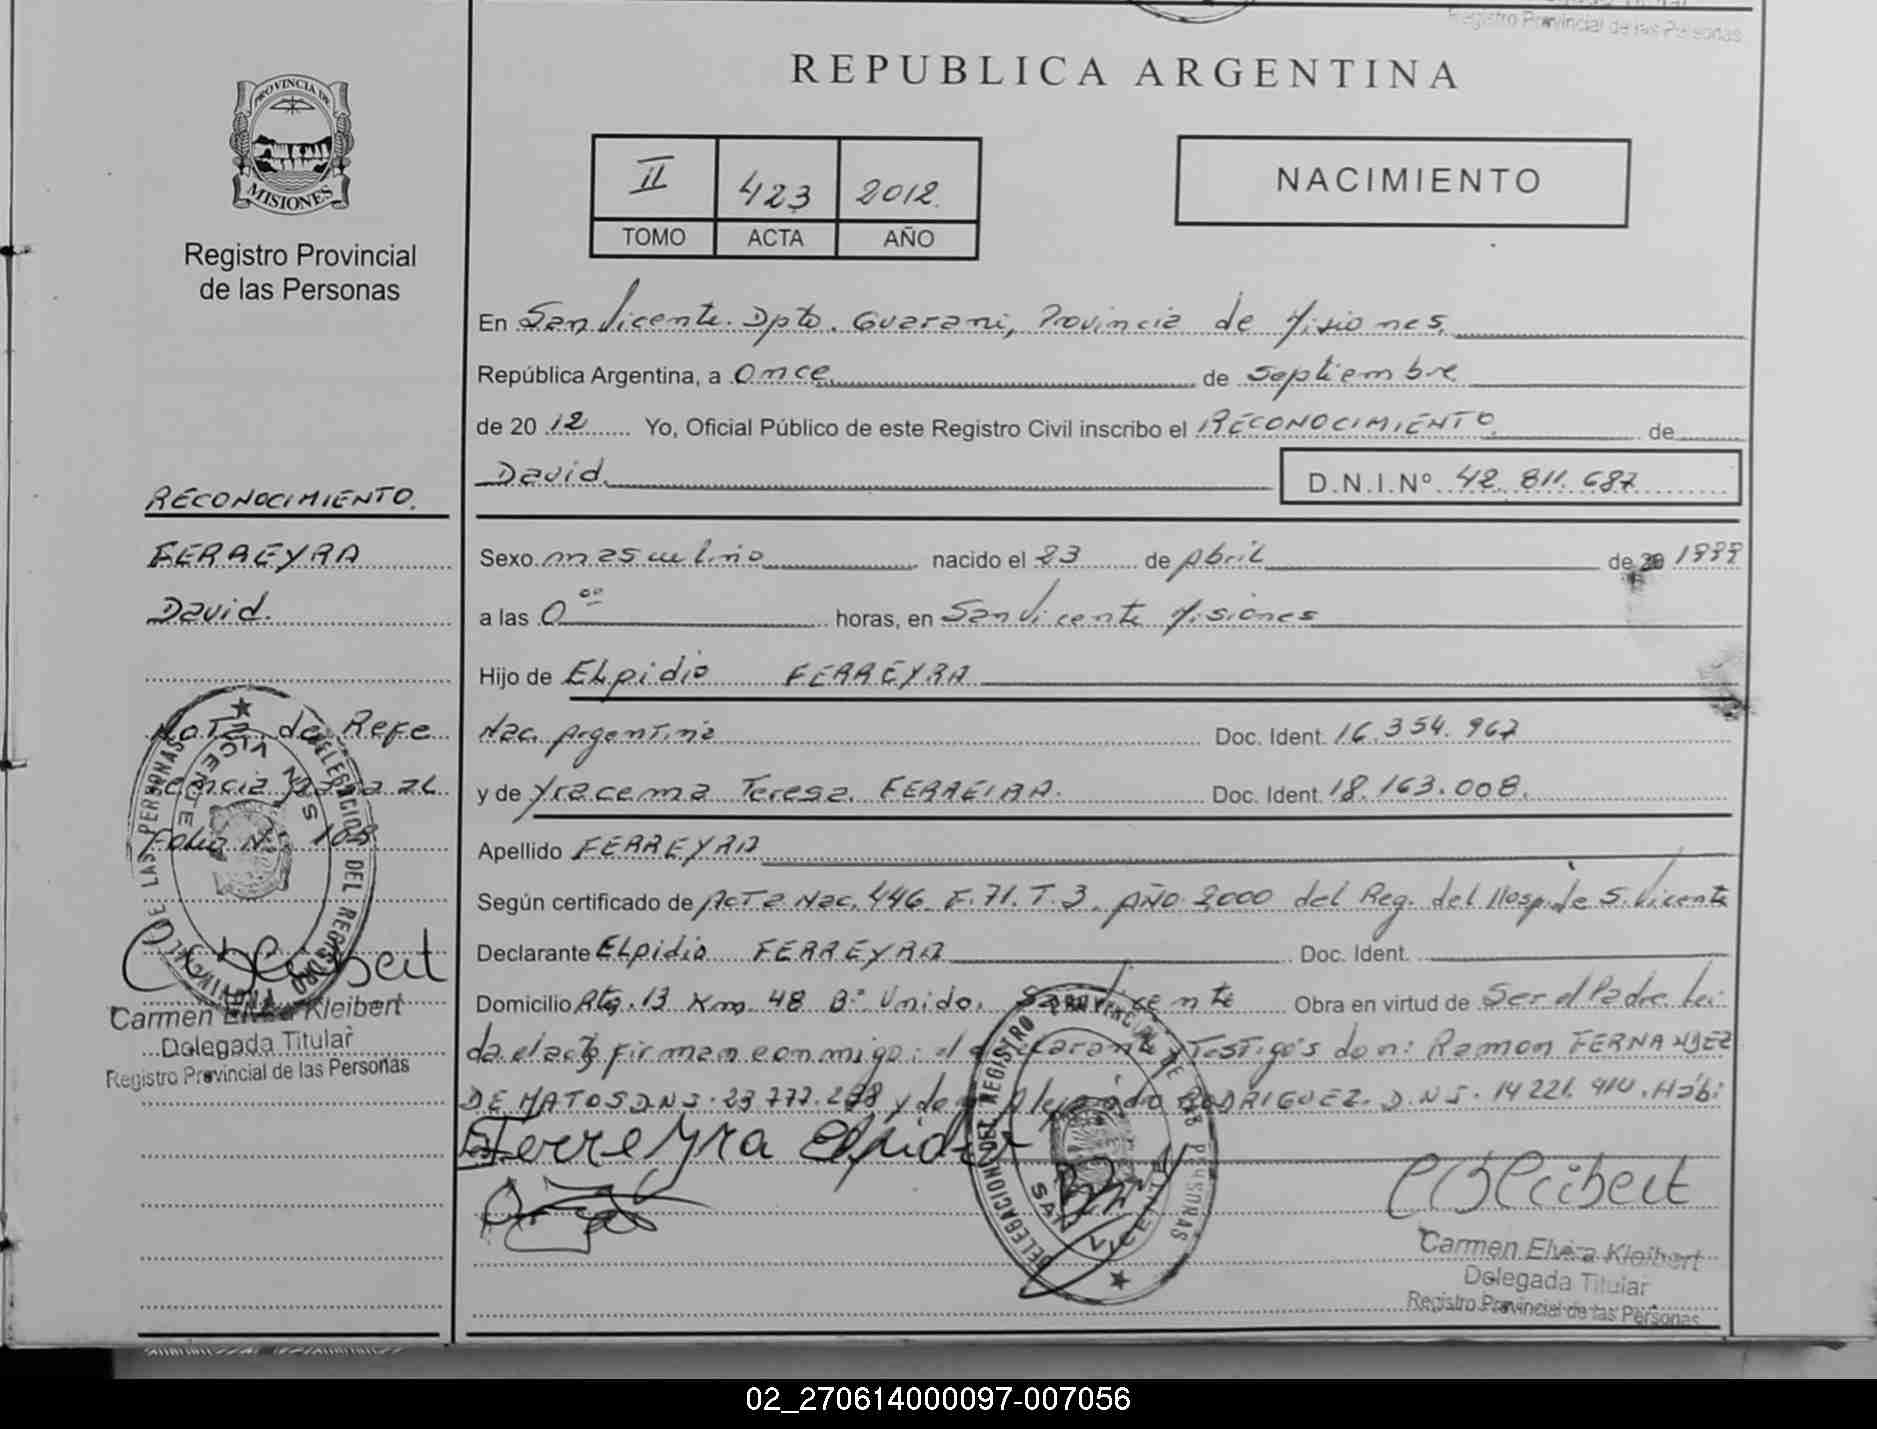 Registro Provincial de las Personas
PROVINCIA DE
MISIONES
Registro Provincial
de las Personas
REPUBLICA ARGENTINA
II 423 2012
TOMO ACTA AÑO
NACIMIENTO
En San Vicente Dpto. Guarani, Provincia de Misiones
República Argentina, a once de septiembre
de 20 12 Yo, Oficial Público de este Registro Civil inscribo el RECONOCIMIENTO de
David D.N.I.Nº 42.811.687
Sexo masculino nacido el 23 de Abril de 20 1999
a las 0 00 horas, en San Vicente Misiones
Hijo de Elpidio FERREYRA
Nac. Argentina Doc. Ident. 16.354.967
y de Yracema Teresa FERREIRA. Doc. Ident. 18.163.008.
Apellido FERREYRA
Según certificado de Acta Nac. 446 F. 71. T. 3. AÑO 2000 del Reg. del Hosp. de S. Vicente
Declarante Elpidio FERREYRA Doc. Ident.
Domicilio Rta. 13 Km. 48 Bº Unido. San Vicente Obra en virtud de Ser el Padre Lei
da el acta firman conmigo: el declarante y Testigos don: Ramon FERNANDEZ
DE MATOS D.N.I. 23.777.278 y don Alejandro RODRIGUEZ. D.N.I. 14.221.410. Hábi
Ferreyra Elpidio
DELEGACION DEL REGISTRO PROVINCIAL DE LAS PERSONAS
SAN VICENTE
CEKleibert
Carmen Elvira Kleibert
Delegada Titular
Registro Provincial de las Personas
RECONOCIMIENTO.
FERREYRA
David.
Nota de Refe
rencia pasa al
Folio Nº
DELEGACION DEL REGISTRO PROVINCIAL DE LAS PERSONAS
SAN VICENTE
CEKleibert
Carmen Elvira Kleibert
Delegada Titular
Registro Provincial de las Personas
02_270614000097-007056